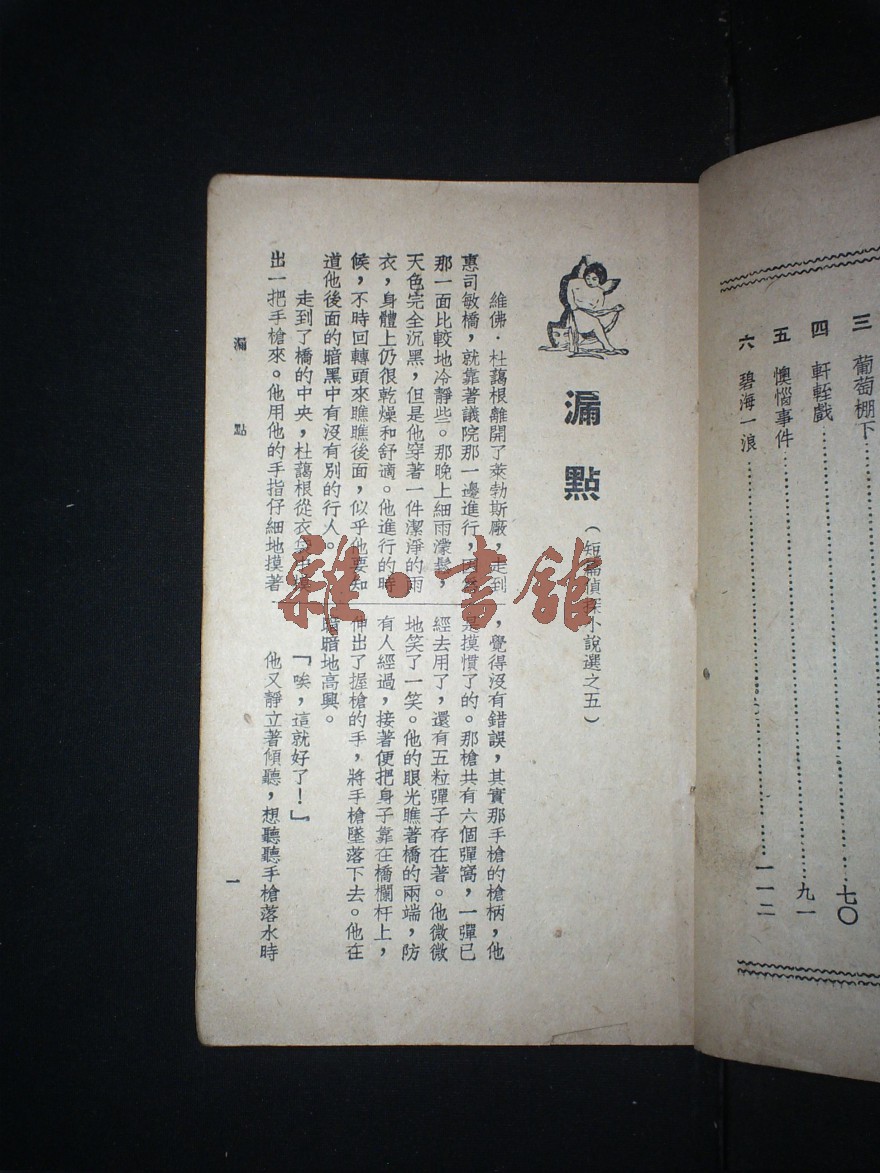 三 葡萄棚下
四 軒輊戲……七〇
五 懊惱事件……九一
六 碧海一浪……一一二
漏點
（短篇偵探小說選之五）
維佛．杜藹根離開了萊勃斯廠，走到
惠司敏橋，就靠著議院那一邊進行，因為
那一面比較地冷靜些。那晚上細雨濛鬆，
天色完全沉黑，但是他穿著一件潔淨的雨
衣，身體上仍很乾燥和舒適。他進行的時
候，不時回轉頭來瞧瞧後面，似乎他要知
道他後面的暗黑中有沒有別的行人。
走到了橋的中央，杜藹根從衣
出一把手槍來。他用他的手指仔細地摸著
，覺得沒有錯誤，其實那手槍的槍柄，他
是摸慣了的。那槍共有六個彈窩，一彈已
經去用了，還有五粒彈子存在著。他微微
地笑了一笑。他的眼光瞧著橋的兩端，防
有人經過，接著便把身子靠在橋欄杆上，
伸出了握槍的手，將手槍墜落下去。他在
暗暗地高興。
「唉，這就好了！」
他又靜立著傾聽，想聽聽手槍落水時
漏點
一
雜·書館